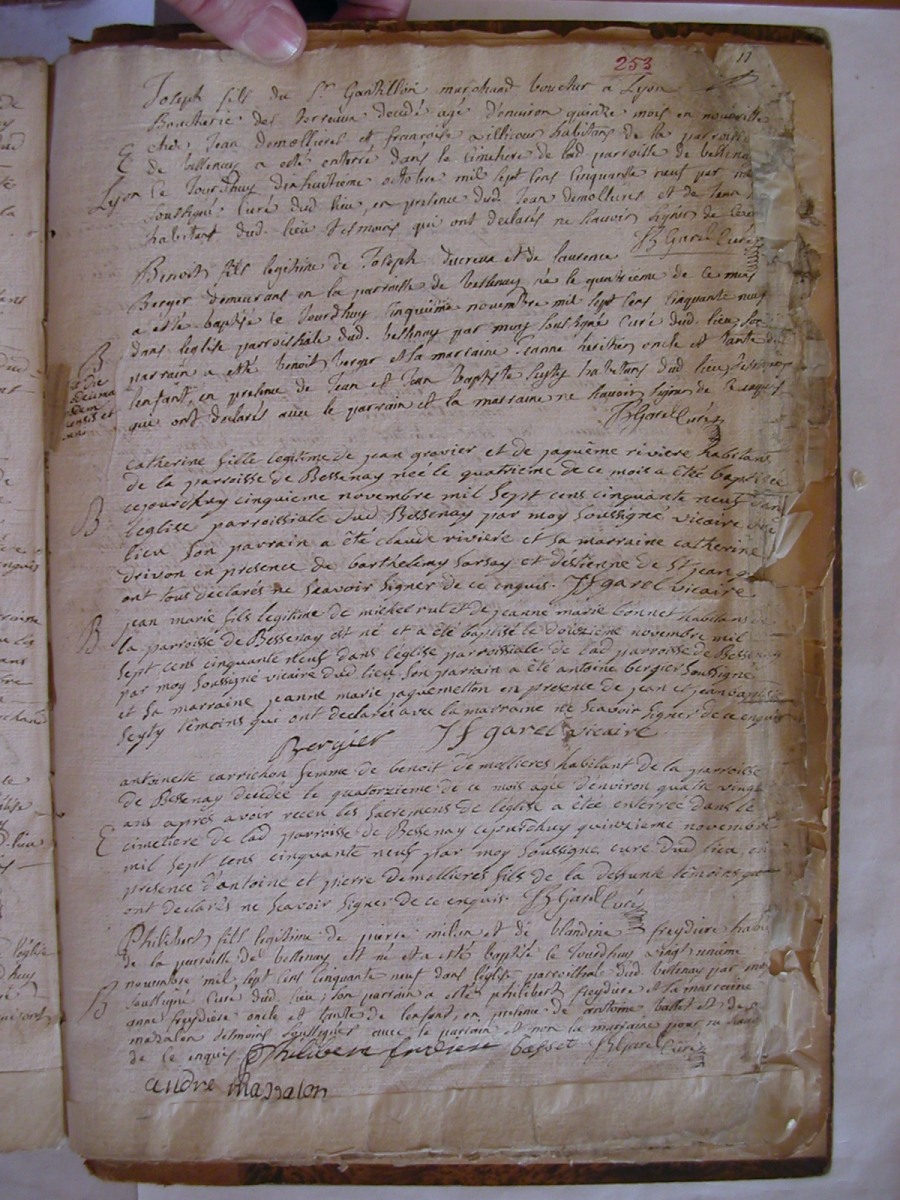 253
11
Joseph fils du Sr Gantillon marchand boucher a Lyon
Boucherie des terreaux decedé agé d'environ quinze mois en nourrisse
chés Jean demollieres et francoise habitans de la parroisse
E
de bessenay a esté enterré dans le cimetiere de lad parroisse de bessenay
Lyon
ce Jourdhuy dixhuitième octobre mil sept cens cinquante neuf par
soussigné Curé dud lieu, en presence dud Jean demollieres et de
habitans dud. lieu tesmoins qui ont declarés ne scavoir signer de
JB Garel Curé
Benoit fils legitime de Joseph ducreux et de laurence
Berger demeurans en la parroisse de bessenay né le quatrieme de ce mois
a esté baptisé ce Jourdhuy Cinquième novembre mil sept cens cinquante neuf
B
dans l'eglise parroissiale dud. bessenay par moy soussigné Curé dud. lieu, son
parrain a esté benoit berger et la marraine Jeanne oncle et tante de
l'enfant, en presence de Jean et Jean Baptiste Seyty habitans dud lieu tesmoins
qui ont declarés avec le parrain et la marraine ne scavoir signer de ce enquis
JB Garel Curé
catherine fille legitime de jean gravier et de jaquême riviere habitans
de la parroisse de Bessenay née le quatrieme de ce mois a êté baptisée
cejourdhuy cinquieme novembre mil sept cens cinquante neuf dans
B
l'eglise parroissiale dud Bessenay par moy soussigné vicaire dud
lieu son parrain a êté claude riviere et sa marraine catherine
drivon en presence de barthelemy et d'estienne de St jean
ont tous declarés ne sçeavoir signer de ce enquis. JF garel vicaire
jean marie fils legitime de michel rut et de jeanne marie bonnet habitans de
B
la parroisse de Bessenay est né et a êté baptisé le douzieme novembre mil
sept cens cinquante neuf dans l'eglise parroissiale de lad parroisse de Bessenay
par moy soussigné vicaire dud lieu son parrain a êté antoine bergier soussigné
et sa marraine jeanne marie jaquemetton en presence de jean et jean baptiste
seyty témoins qui ont declarés avec la marraine ne sçeavoir signer de ce enquis
Bergier JF garel vicaire
antoinette carrichon femme de benoit de mollieres habitant de la parroisse
de Bessenay decedée le quatorzieme de ce mois agée d'environ quatre vingt
ans après avoir recen les sacremens de l'eglise a êtée enterrée dans le
E
cimetiere de lad parroisse de Bessenay cejourdhuy quinzieme novembre
mil sept cens cinquante neuf par moy soussigné curé dud lieu, en
presence d'antoine et pierre demollieres fils de la deffunte témoins qui
ont declarés ne sçeavoir signer de ce enquis JB Garel Curé
Philibert fils legitime de pierre milan et de blandine freydiere
de la parroisse de bessenay est né et a esté baptisé ce Jourdhuy vingt unième
novembre mil sept cens cinquante neuf dans l'eglise parroissiale dud bessenay par moy
B
soussigné Curé dud lieu, son parrain a esté philibert freydiere et la marraine
anne freydiere oncle et tante de l'enfant, en presence de antoine basset et de
mazalon tesmoins soussignés avec le parrain et non la marraine pour ne scavoir
de ce enquis Philibert fredière basset JB Garel Curé
andre mazzalon